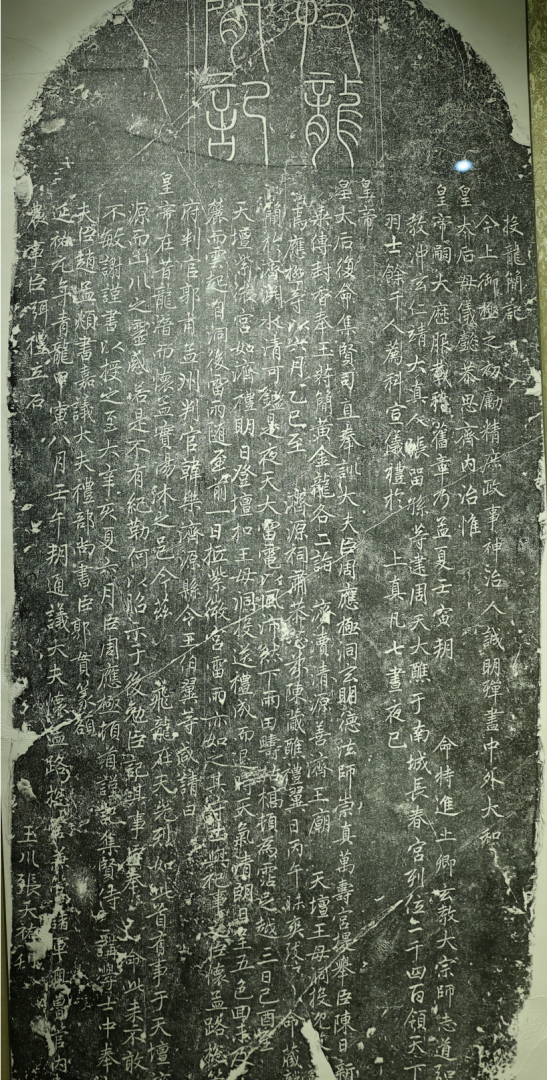 投龍簡記
投龍簡記
今上御極之初勵精庶政事神治人誠明殫盡中外大和
皇太后母儀懿恭思齊內治惟
皇帝嗣大歷服載稽舊章乃孟夏壬寅朔 命特進上卿玄教大宗師志道弘
教沖玄仁靖大真人張留孫等建周天大醮于南城長春宮列位二千四百領天下
羽士餘千人蕆科宣儀禮於 上真凡七晝夜已
皇帝
皇太后復命集賢司直奉訓大夫臣周應極洞玄明德法師崇真萬壽宮提舉臣陳日新
乘傳封香奉玉符簡黃金龍各二詣 濟瀆清源善濟王廟 天壇王母洞投
焉應極等以六月乙巳至 濟源祠肅恭 陳蕆雖禮翼日丙午昧爽 命
簡於濟淵水清可鑑是夜天大雷電以風沛然下雨田疇枯槁頓為霑之越三日己酉至
天壇紫微宮如濟禮明日登壇扣王母洞投送禮成而退時天氣清朗日呈五色回未及
麓而雲起自洞後雷雨隨至前一日抵紫微宮雷雨亦如之其 祀事 臣懷孟路總
府判官郭甫孟州判官韓 濟源縣令王伯翼等咸請曰
皇帝在首龍潛而懷孟實湯沐之邑今茲 飛龍在天光烈如此首有事于天壇
源而山川之靈威 是不有紀勒何以昭示于後勉臣記其事 奉 命此未不敢
不敏謝謹書以授之至大辛亥夏六月臣周應極頓首謹記集賢侍講學士中奉
夫臣趙孟頫書嘉議大夫禮部尚書臣郭貫篆額
延祐元年青龍甲寅八月壬午朔通議大夫懷孟路總管兼 諸軍奧魯管內
農事臣 禮立石 玉川張大